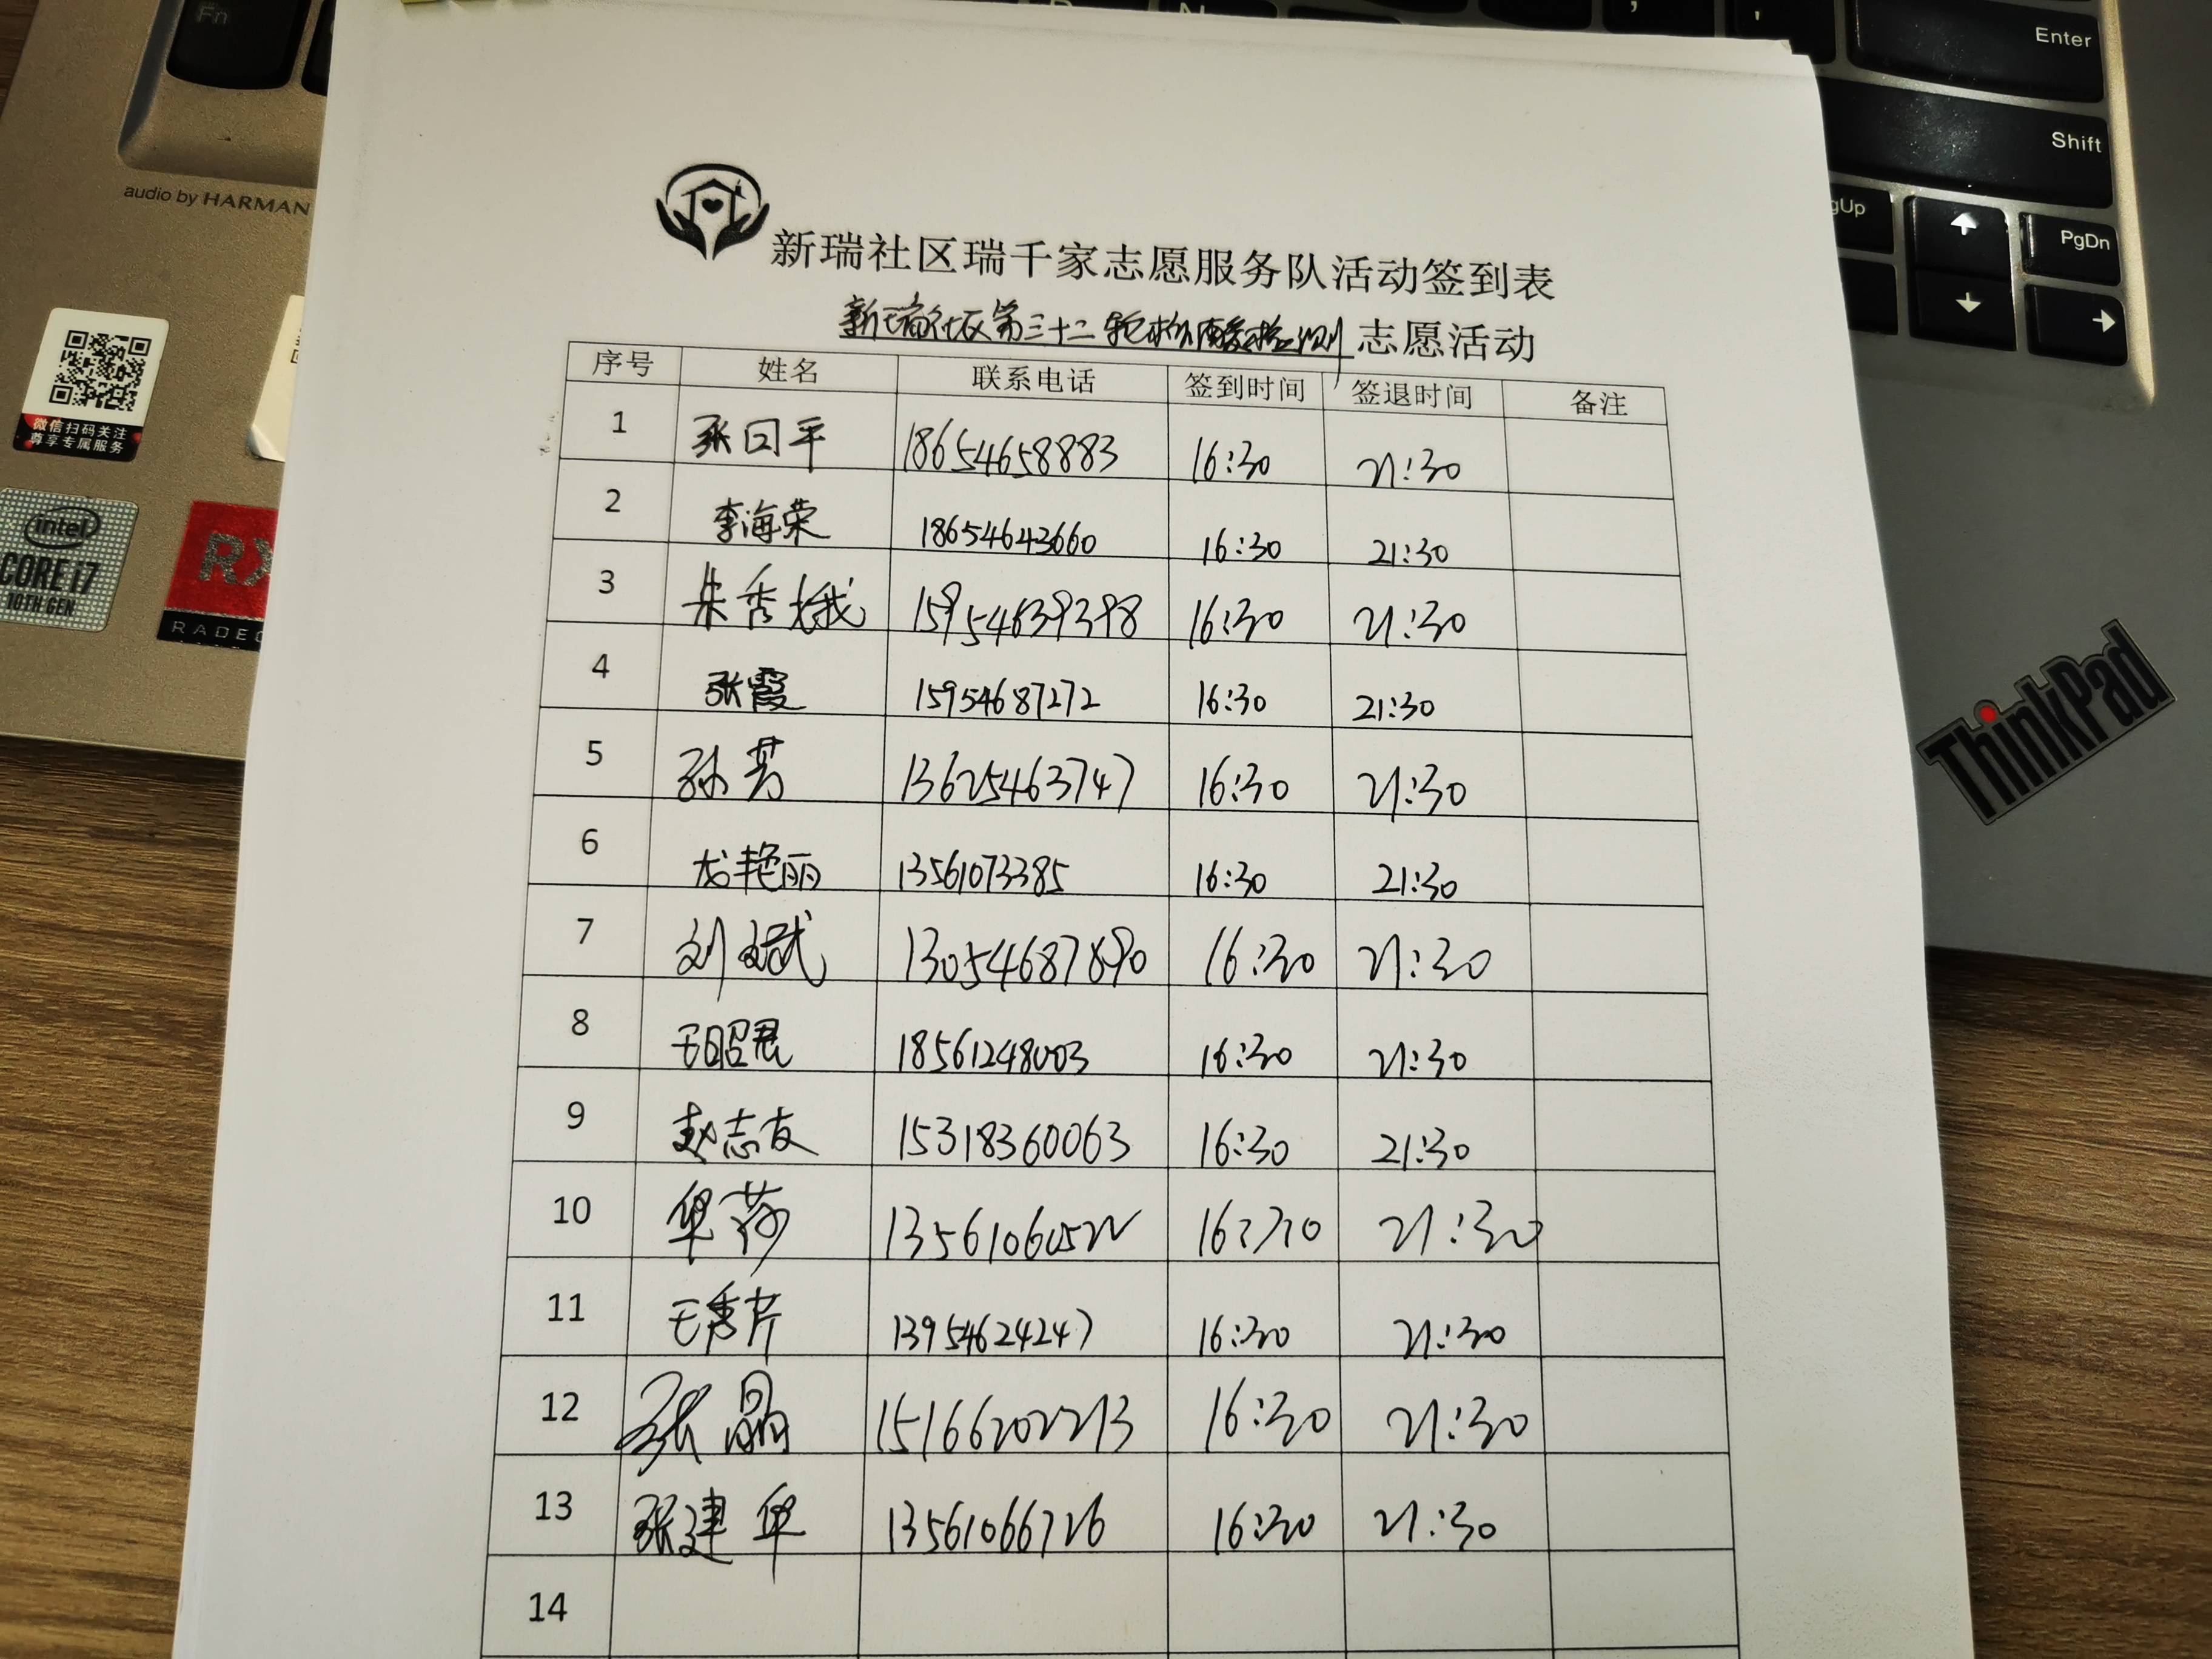 Fn
Enter
Shift
gUp
PgDn
audio by HARMAN
微信扫码关注
尊享专属服务
intel
CORE i7
10TH GEN
RX
RADEO
ThinkPad
新瑞社区瑞千家志愿服务队活动签到表
新瑞社区第三十二轮核酸检测 志愿活动
序号 姓名 联系电话 签到时间 签退时间 备注
1 张曰平 18654658883 16:30 21:30
2 李海荣 18654643660 16:30 21:30
3 朱秀娥 15954639398 16:30 21:30
4 张霞 15954687272 16:30 21:30
5 孙芳 13625463747 16:30 21:30
6 尤艳丽 13561073385 16:30 21:30
7 刘斌 13054687890 16:30 21:30
8 王昭君 18561248003 16:30 21:30
9 赵志友 15318360063 16:30 21:30
10 华荷 16:30 21:30
11 王秀芹 13954624247 16:30 21:30
12 张晶 15166202213 16:30 21:30
13 张建华 13561066726 16:30 21:30
14